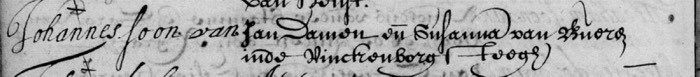 Johannes soon van Jan Damen en̄ Susanna van
inde Vinckenborg